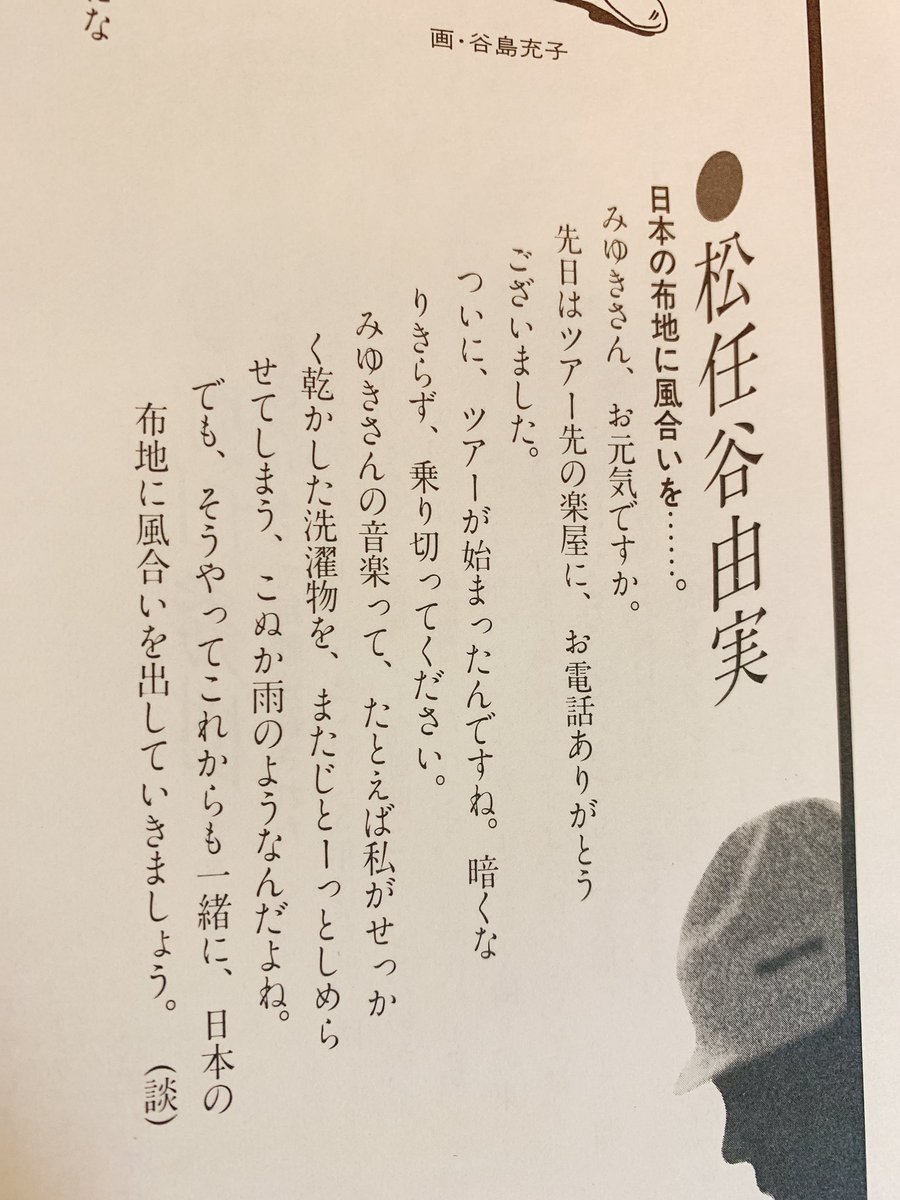 にな
画・谷島充子
●松任谷由実
日本の布地に風合いを……。
みゆきさん、お元気ですか。
先日はツアー先の楽屋に、お電話ありがとう
ございました。
ついに、ツアーが始まったんですね。暗くな
りきらず、乗り切ってください。
みゆきさんの音楽って、たとえば私がせっか
く乾かした洗濯物を、またじとーっとしめら
せてしまう、こぬか雨のようなんだよね。
でも、そうやってこれからも一緒に、日本の
布地に風合いを出していきましょう。（談）